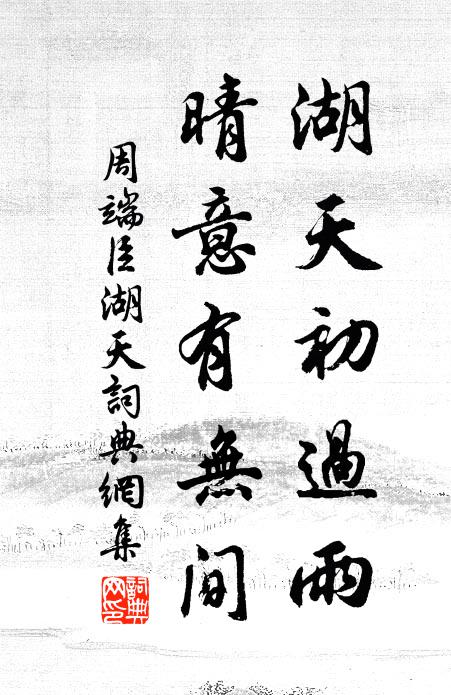 湖天初過雨
晴意有無間
周端臣湖天詞典網集
詞典網印